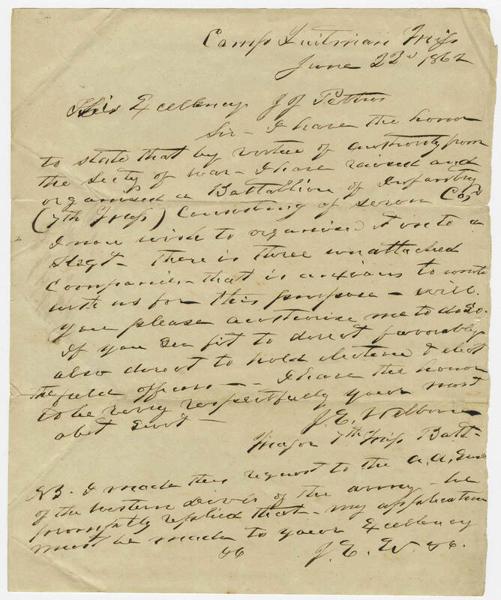 Camp Quitman Miss
June 22d 1862
His Excellency J J Pettus
Sir - I have the honor
to state that by virtue of authority from
the Secty of war - I have raised and
organised a Battallion of Infantry
(7th Miss) Consisting of seven Cos
I now wish to organise it into a
Regt - there is three unattached
Companies - that is anxious to unite
with us for this purpose - will
you please authorise me to do so.
If you see fit to do it favorably
also direct to hold elections & elect
the field officers - I have the honor
to be very respectfully your most
obet Servt -
J. E. Welborn
Major 7th Miss Batt-
NB. I made this request to the A. A. Genl
of the western Divis of the army - he
promptly replied that - my application
must be made to your Excellency
&c J. E. W. &c.